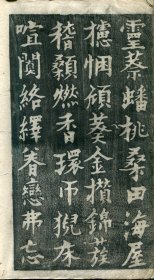 靈蔡蟠桃桑田海屋
攄悃頎葵金攢錦簇
稽顙燃香環帀猊床
喧闐絡繹眷戀弗忘